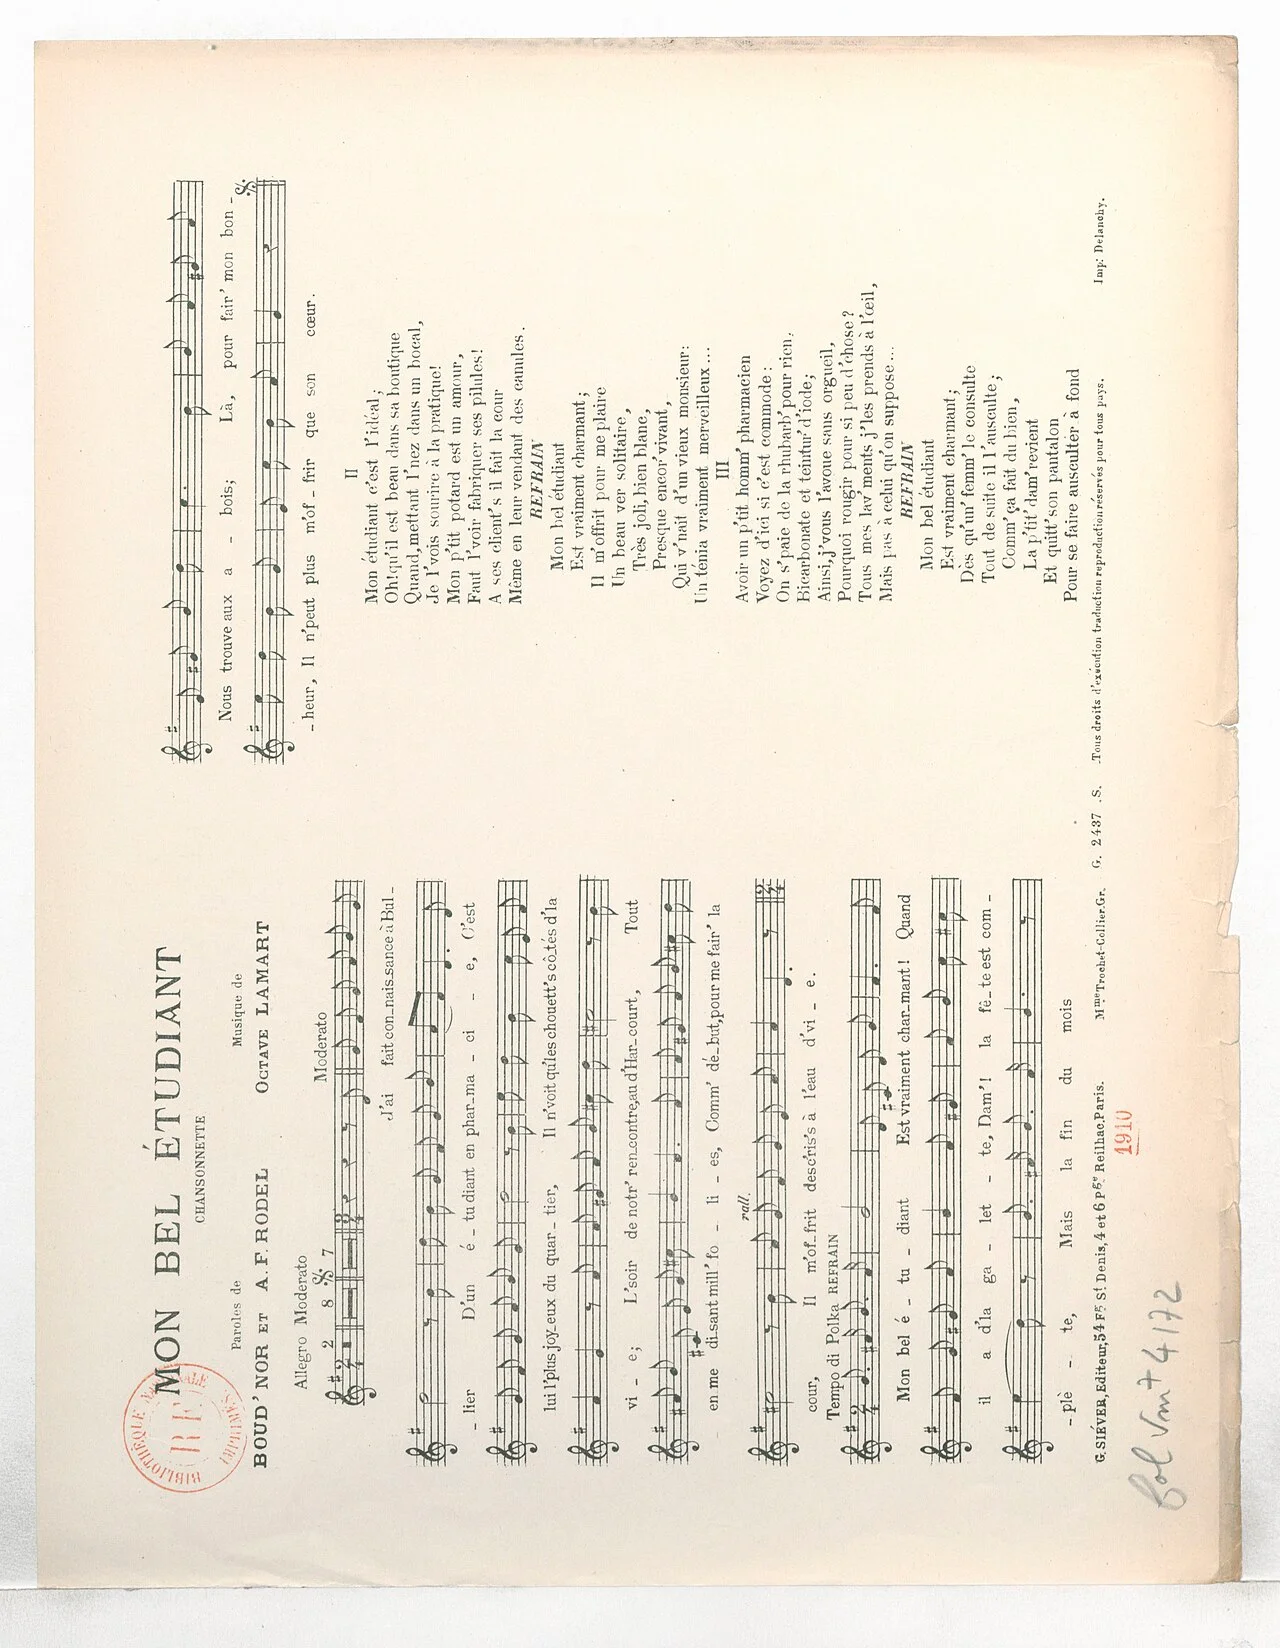 MON BEL ÉTUDIANT
CHANSONNETTE
Paroles de
BOUD'NOR ET A.F. RODEL
Musique de
OCTAVE LAMART
BIBLIOTHÈQUE NATIONALE
RF
IMPRIMÉS
Allegro Moderato
Moderato
2 8 7
J'ai fait con_nais_sance à Bul_
_lier D'un é_tudiant en phar_ma_ci_e, C'est
lui l'plus joy_eux du quar_tier, Il n'voit qu'les chouett's cô_tés d'la
vi_e; L'soir de notr' ren_contre, au d'Har_court, Tout
en me di_sant mill' fo_li_es, Comm' dé_but, pour me fair' la
rall.
cour, Il m'of_frit des cris's à l'eau d'vi_e.
Tempo di Polka REFRAIN
Mon bel é_tu_diant Est vraiment char_mant! Quand
il a d'la ga_let_te, Dam'! la fê_te est com_
_plè_te, Mais la fin du mois
Nous trouve aux a_bois; Là, pour fair' mon bon_
_heur, Il n'peut plus m'of_frir que son cœur.
II
Mon étudiant c'est l'idéal;
Oh! qu'il est beau dans sa boutique
Quand, mettant l'nez dans un bocal,
Je l'vois sourire à la pratique!
Mon p'tit potard est un amour,
Faut l'voir fabriquer ses pilules!
A ses client's il fait la cour
Même en leur vendant des canules.
REFRAIN
Mon bel étudiant
Est vraiment charmant;
Il m'offrit pour me plaire
Un beau ver solitaire,
Très joli, bien blanc,
Presque encor' vivant,
Qui v'nait d'un vieux monsieur:
Un ténia vraiment merveilleux...
III
Avoir un p'tit homm' pharmacien
Voyez d'ici si c'est commode:
On s'paie de la rhubarb' pour rien,
Bicarbonate et teintur' d'iode;
Ainsi, j'vous l'avoue sans orgueil,
Pourquoi rougir pour si peu d'chose?
Tous mes lav'ments j'les prends à l'œil,
Mais pas à celui qu'on suppose...
REFRAIN
Mon bel étudiant
Est vraiment charmant;
Dès qu'un' femm' le consulte
Tout de suite il l'ausculte;
Comm' ça fait du bien,
La p'tit' dam' revient
Et quitt' son pantalon
Pour se faire ausculter à fond
G. SIÉVER, Editeur, 54 Fg St Denis, 4 et 6 Pge Reilhac, Paris. Mme Trochet-Collier. Gr. G. 2437 .S. Tous droits d'exécution traduction reproduction réservés pour tous pays. Imp: Delanchy.
1910
Fol Vm7 4172